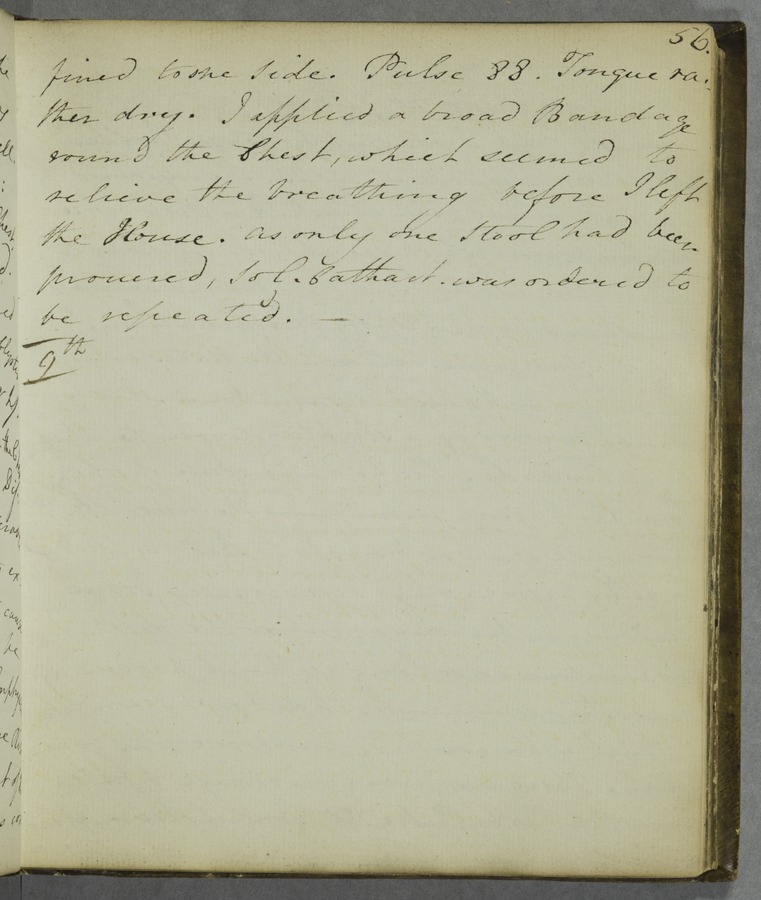 56.
fined to one side. Pulse 88. Tongue ra-
ther dry. I applied a broad Bandage
round the Chest, which seemed to
relieve the breathing before I left
the House. as only one Stool had been
procured, Sol. Cathart. was ordered to
be repeated. —
9th